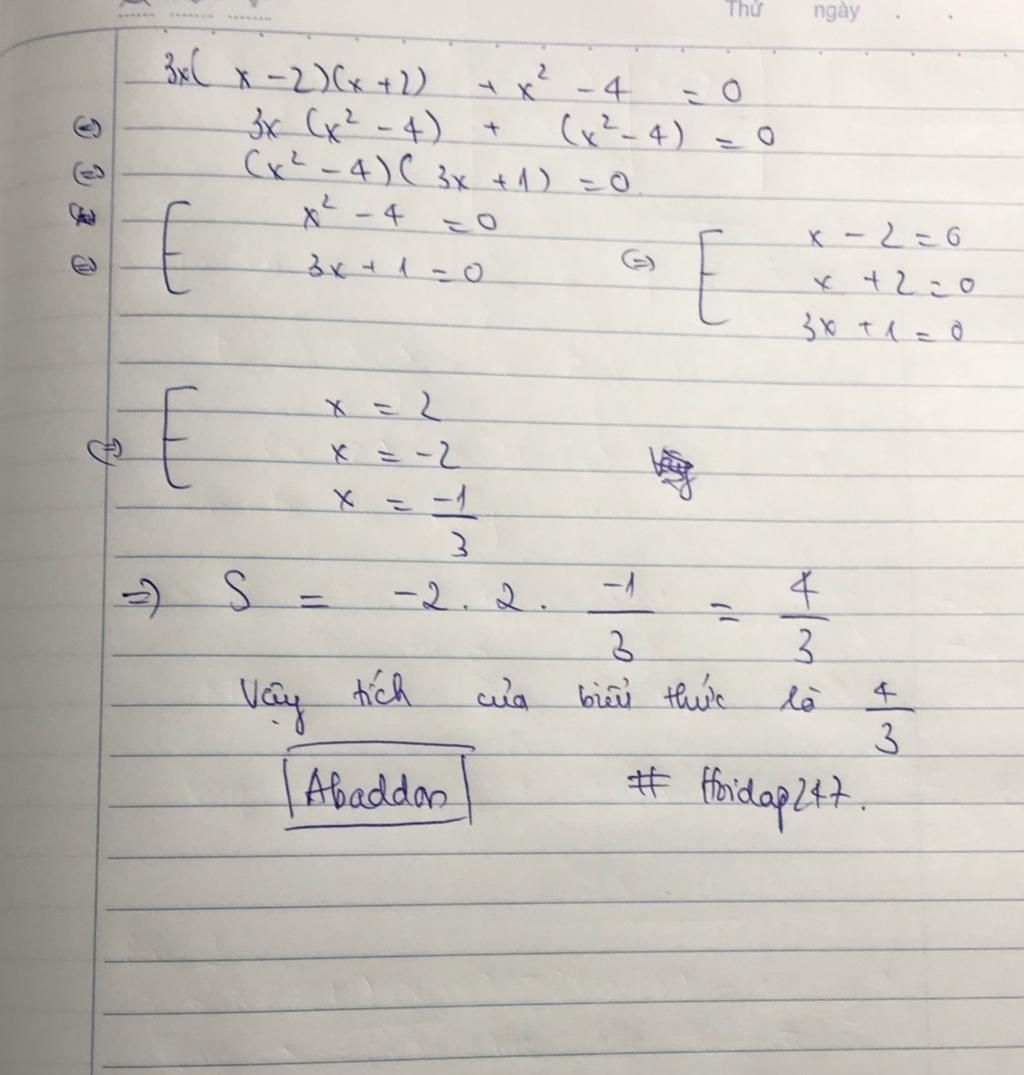 Thứ ngày . .
3x(x-2)(x+2) + x² - 4 = 0
⇔ 3x (x² - 4) + (x² - 4) = 0
⇔ (x² - 4)(3x + 1) = 0
⇔ [ x² - 4 = 0
3x + 1 = 0
⇔ [ x - 2 = 0
x + 2 = 0
3x + 1 = 0
⇔ [ x = 2
x = -2
x = -1/3
⇒ S = -2 . 2 . -1/3 = 4/3
Vậy tích của biểu thức là 4/3
Abaddon # Hoidap247.